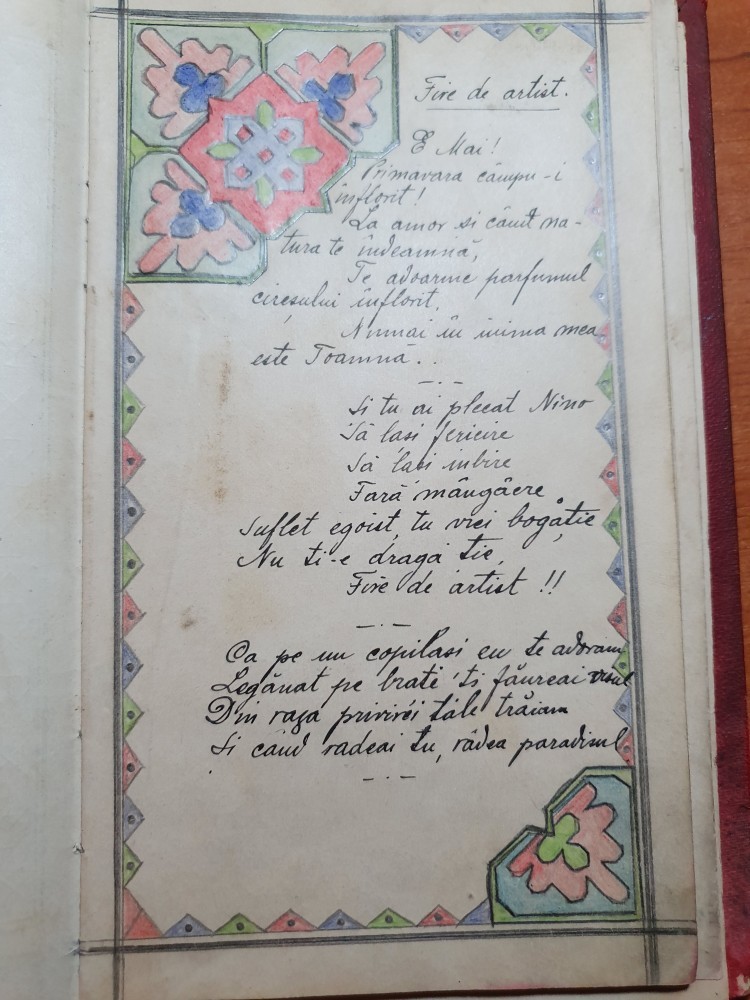 Fire de artist.
E Mai!
Primavara câmpu-i
înflorit!
La amor si când na-
tura te îndeamnă,
Te adoarme parfumul
cireșului înflorit,
Numai in inima mea
este Toamnă..
Si tu ai plecat Nino
Să lasi fericire
Să lasi iubire
Fară mângăere
Suflet egoist, tu vrei bogăție
Nu ti-e dragă tie,
Fire de artist!!
Ca pe un copilasi eu te adoram
Legănat pe brate 'ti făureai visul
Din raza privirei tale trăiam
Si când radeai tu, râdea paradisul